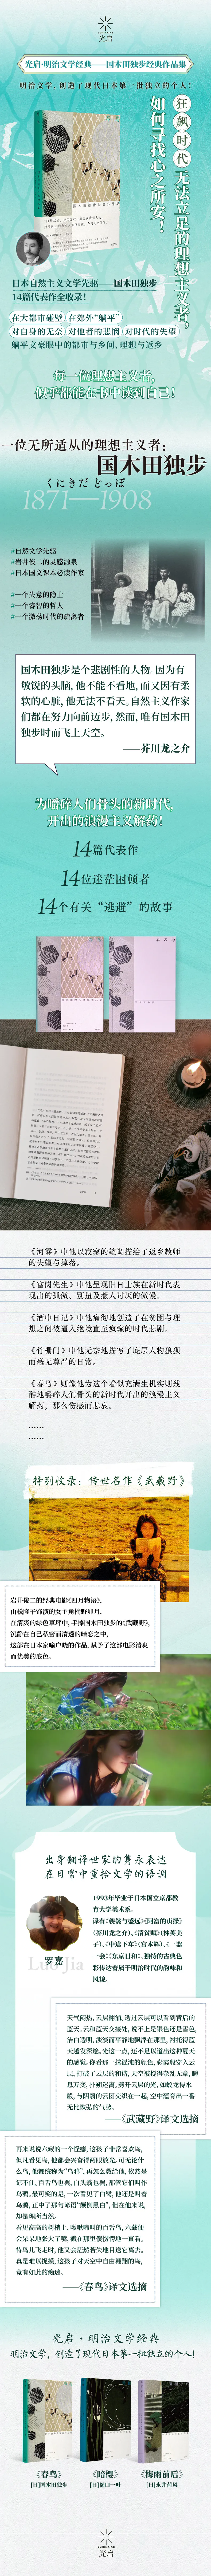 光启
光启·明治文学经典——国木田独步经典作品集
明治文学,创造了现代日本第一批独立的个人!
狂飙时代
无法立足的理想主义者,
如何寻找心之所安!
日本自然主义文学先驱——国木田独步
14篇代表作全收录!
在大都市碰壁 在郊外“躺平”
对自身的无奈 对他者的悲悯 对时代的失望
躺平文豪眼中的都市与乡间、理想与返乡
每一位理想主义者,
似乎都能在书中读到自己!
一位无所适从的理想主义者:
国木田独步
くにきだ どっぽ
1871—1908
#自然文学先驱
#岩井俊二的灵感源泉
#日本国文课本必读作家
#一个失意的隐士
#一个睿智的哲人
#一个激荡时代的疏离者
国木田独步是个悲剧性的人物。因为有
敏锐的头脑,他不能不看地,而又因有柔
软的心脏,他无法不看天。自然主义作家
们都在努力向前迈步,然而,唯有国木田
独步时而飞上天空。
——芥川龙之介
为啃碎人们骨头的新时代,
开出的浪漫主义解药!
14篇代表作
14位迷茫困顿者
14个有关“逃避”的故事
《河雾》中他以寂寥的笔调描绘了返乡教师
的失望与掉落。
《富岗先生》中他呈现旧日士族在新时代表
现出的孤傲、别扭及惹人讨厌的傲慢。
《酒中日记》中他痛彻地创造了在贫困与理
想之间被逼入绝境直至疯癫的时代悲剧。
《竹栅门》中他无奈地描写了底层人物狼狈
而毫无尊严的日常。
《春鸟》则像他为这个看似充满生机实则残
酷地嚼碎人们骨头的新时代开出的浪漫主义
解药,那么伤感而悲哀。
……
……
特别收录:传世名作《武藏野》
岩井俊二的经典电影《四月物语》,
由松隆子饰演的女主角榆野卯月,
在清爽的绿色草坪中,手捧国木田独步的《武藏野》,
沉静在自己私密而清透的暗恋之中,
这部在日本家喻户晓的作品,赋予了这部电影清爽
而优美的底色。
出身翻译世家的隽永表达
在日常中重拾文学的语调
罗嘉
Luo Jia
1993年毕业于日本国立京都教
育大学美术系。
译有《袈裟与盛远》《阿富的贞操》
(芥川龙之介)、《清贫赋》(林芙美
子)、《中途下车》(宫本辉)、《一器
一会》《东京日和》。独特的古典色
彩传达着属于明治时代的韵味和
风貌。
天气闷热,云层翻涌。透过云层可以看到背后的
蓝天。云和蓝天交接处,说不上是银色还是雪色,
洁白透明,淡淡而平静地飘浮在那里,衬托得蓝
天越发深邃。光这一点,还不足以道出这种夏天
的感觉。你看那一抹混沌的颜色,彩霞般穿入云
层,打破了云层的和谐。天空被搅得杂乱无章,瞬
息万变,扑朔迷离。劈开云层的光,如蛟龙得水般
与阴翳的云团交织在一起,空中蕴育出一番
无比恢弘的气势。
——《武藏野》译文选摘
再来说说六藏的一个怪癖,这孩子非常喜欢鸟,
但凡看见鸟,他都会兴奋得两眼放光。可无论什
么鸟,他都统称为“乌鸦”,再怎么教给他,依然是
记不住。百舌鸟也罢,白头翁也罢,都管它们叫作
乌鸦。最可笑的是,一次看见了白鹭,他还是叫着
乌鸦,正中了那句谚语“颠倒黑白”,但在他来说,
却是理所当然。
看见高高的树梢上,啾啾啼叫的百舌鸟,六藏便
会呆呆地张大了嘴,戳在那里傻愣愣地一直看。
待鸟儿飞走时,他又会茫然若失地目送它离去。
真是难以捉摸,这孩子对天空中自由翱翔的鸟,
竟有如此的痴迷。
——《春鸟》译文选摘
光启·明治文学经典
明治文学,创造了现代日本第一批独立的个人!
《春鸟》
[日]国木田独步
《暗樱》
[日]樋口一叶
《梅雨前后》
[日]永井荷风
光启